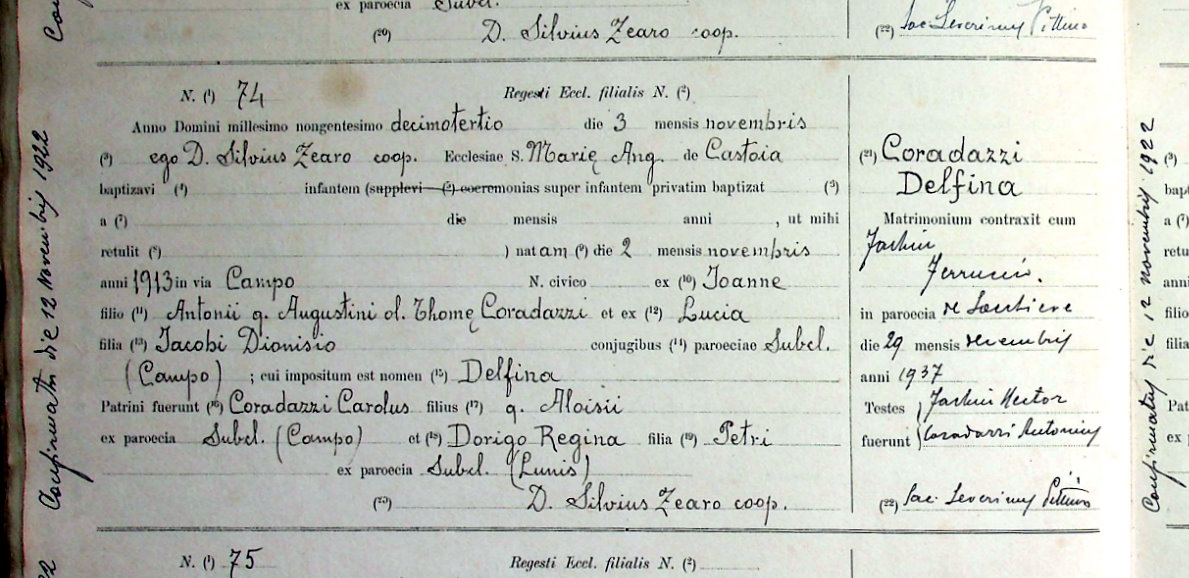 ex paroecia Subcl.
(20) D. Silvius Zearo coop.
(22) Sac Severinus Pittino
N. (1) 74 Regesti Eccl. filialis N. (2)
Anno Domini millesimo nongentesimo decimotertio die 3 mensis novembris
(3) ego D. Silvius Zearo coop. Ecclesiae S. Marię Ang. de Castoia
baptizavi (4) infantem (supplevi (5) coeremonias super infantem privatim baptizat (3)
a (7) die mensis anni , ut mihi
retulit (8) ) natam (9) die 2 mensis novembris
anni 1913 in via Campo N. civico ex (10) Ioanne
filio (11) Antonii q. Augustini ol. Thomę Coradazzi et ex (12) Lucia
filia (13) Iacobi Dionisio conjugibus (14) paroeciae Subcl.
(Campo) ; cui impositum est nomen (15) Delfina
Patrini fuerunt (16) Coradazzi Carolus filius (17) q. Aloisii
ex paroecia Subcl. (Campo) et (18) Dorigo Regina filia (19) Petri
ex paroecia Subcl. (Lunis)
(20) D. Silvius Zearo coop.
(21) Coradazzi
Delfina
Matrimonium contraxit cum
Ferruccio.
in paroecia
die 29 mensis
anni 1937
Testes
fuerunt Coradazzi Antonius
(22) Sac. Severinus Pittino
Confirmata die 12 Novembris 1922
Confirmatus die 12 novembris 1922
N. (1) 75 Regesti Eccl. filialis N. (2)